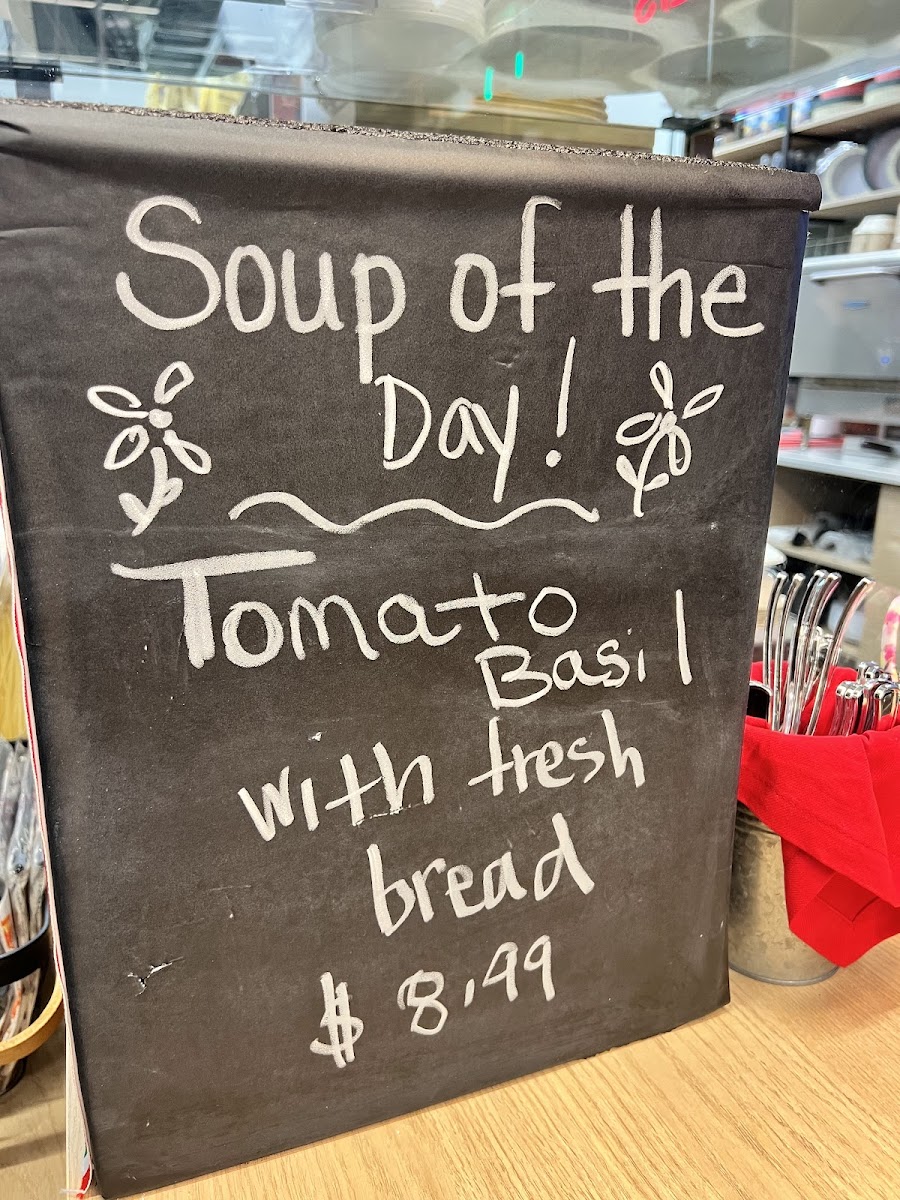 Soup of the
Day!
Tomato
Basil
with fresh
bread
$ 8.99